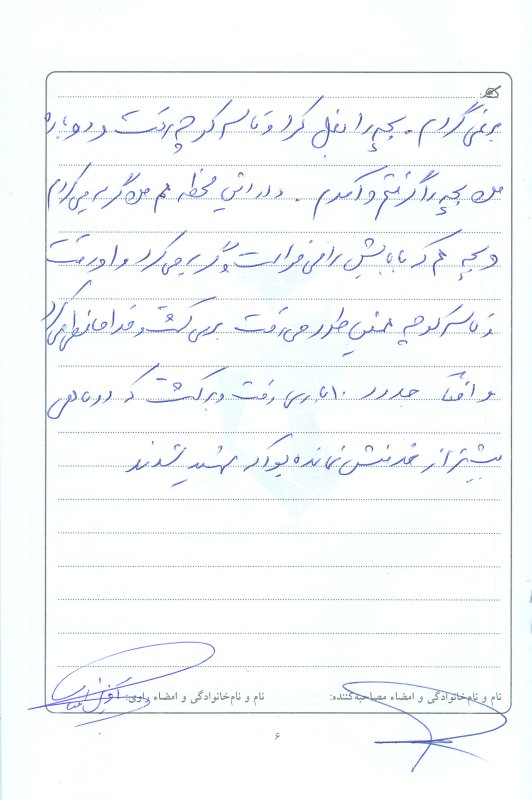 برنمی‌گردم. بچه را بغل کرد و تا سر کوچه رفت و دوباره
من بچه را گرفتم و آمدم. در این لحظه هم من گریه می‌کردم
و بچه هم که بابایش را می‌خواست و گریه می‌کرد و او رفت
و تا سر کوچه همین طور می‌رفت برمی‌گشت و خداحافظی می‌کرد
واقعاً حدود ۱۰ بار می رفت و برگشت که دو ماهی
بیشتر از خدمتش نمانده بود که شهید شدند
نام و نام‌خانوادگی و امضاء مصاحبه‌کننده:
نام و نام‌خانوادگی و امضاء راوی:
۶